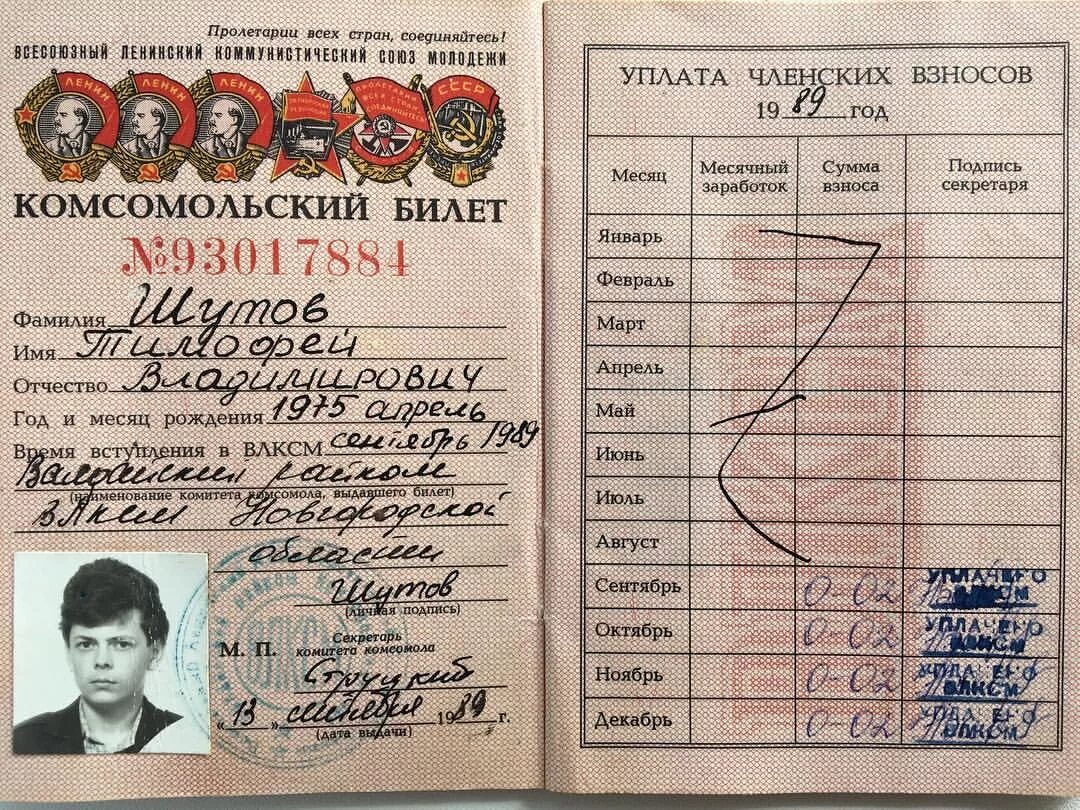 Пролетарии всех стран, соединяйтесь!
ВСЕСОЮЗНЫЙ ЛЕНИНСКИЙ КОММУНИСТИЧЕСКИЙ СОЮЗ МОЛОДЕЖИ
ЛЕНИН ЛЕНИН ЛЕНИН
ПРОЛЕТАРИИ ВСЕХ СТРАН СОЕДИНЯЙТЕСЬ
СССР
КОМСОМОЛЬСКИЙ БИЛЕТ
№93017884
Фамилия Шутов
Имя Тимофей
Отчество Владимирович
Год и месяц рождения 1975 апрель
Время вступления в ВЛКСМ сентябрь 1989
Валдайский райком
(наименование комитета комсомола, выдавшего билет)
ВЛКСМ Новгородской
области
Шутов
(личная подпись)
М. П.
Секретарь
комитета комсомола
«13» сентября 1989 г.
(дата выдачи)
УПЛАТА ЧЛЕНСКИХ ВЗНОСОВ
1989 год
Месяц Месячный заработок Сумма взноса Подпись секретаря
Январь
Февраль
Март
Апрель
Май
Июнь
Июль
Август
Сентябрь 0-02 УПЛАЧЕНО ВЛКСМ
Октябрь 0-02 УПЛАЧЕНО ВЛКСМ
Ноябрь 0-02 УПЛАЧЕНО ВЛКСМ
Декабрь 0-02 УПЛАЧЕНО ВЛКСМ